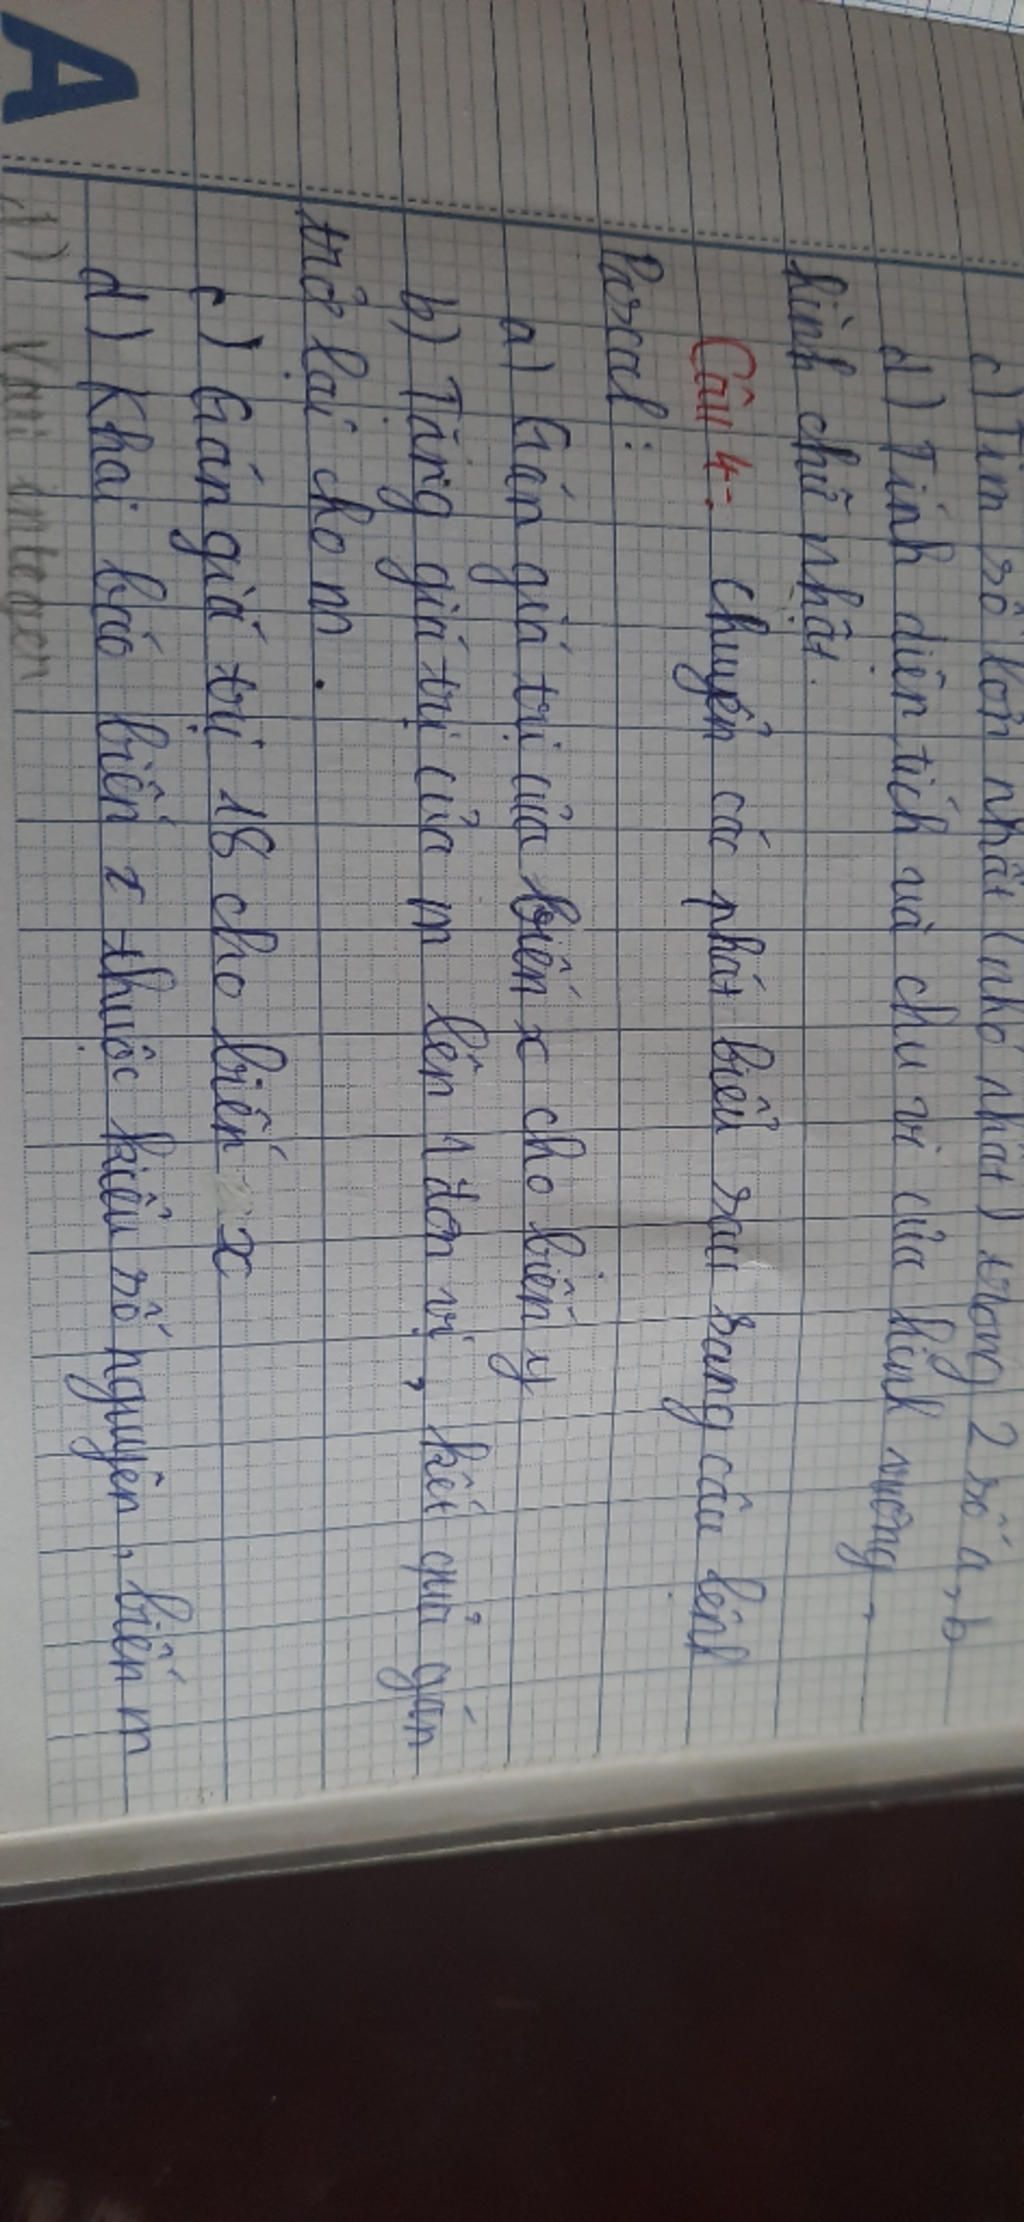 c) Tìm số lớn nhất (nhỏ nhất) trong 2 số a, b
d) Tính diện tích và chu vi của hình vuông,
hình chữ nhật.
Câu 4: chuyển các phát biểu sau sang câu lệnh
Pascal:
a) Gán giá trị của biến x cho biến y
b) Tăng giá trị của m lên 1 đơn vị, kết quả gán
trở lại cho m.
c) Gán giá trị 18 cho biến x
d) Khai báo biến x thuộc kiểu số nguyên, biến m
A